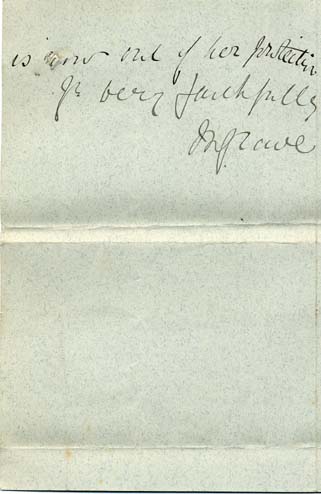 is now out of her protection
Yrs very faithfully